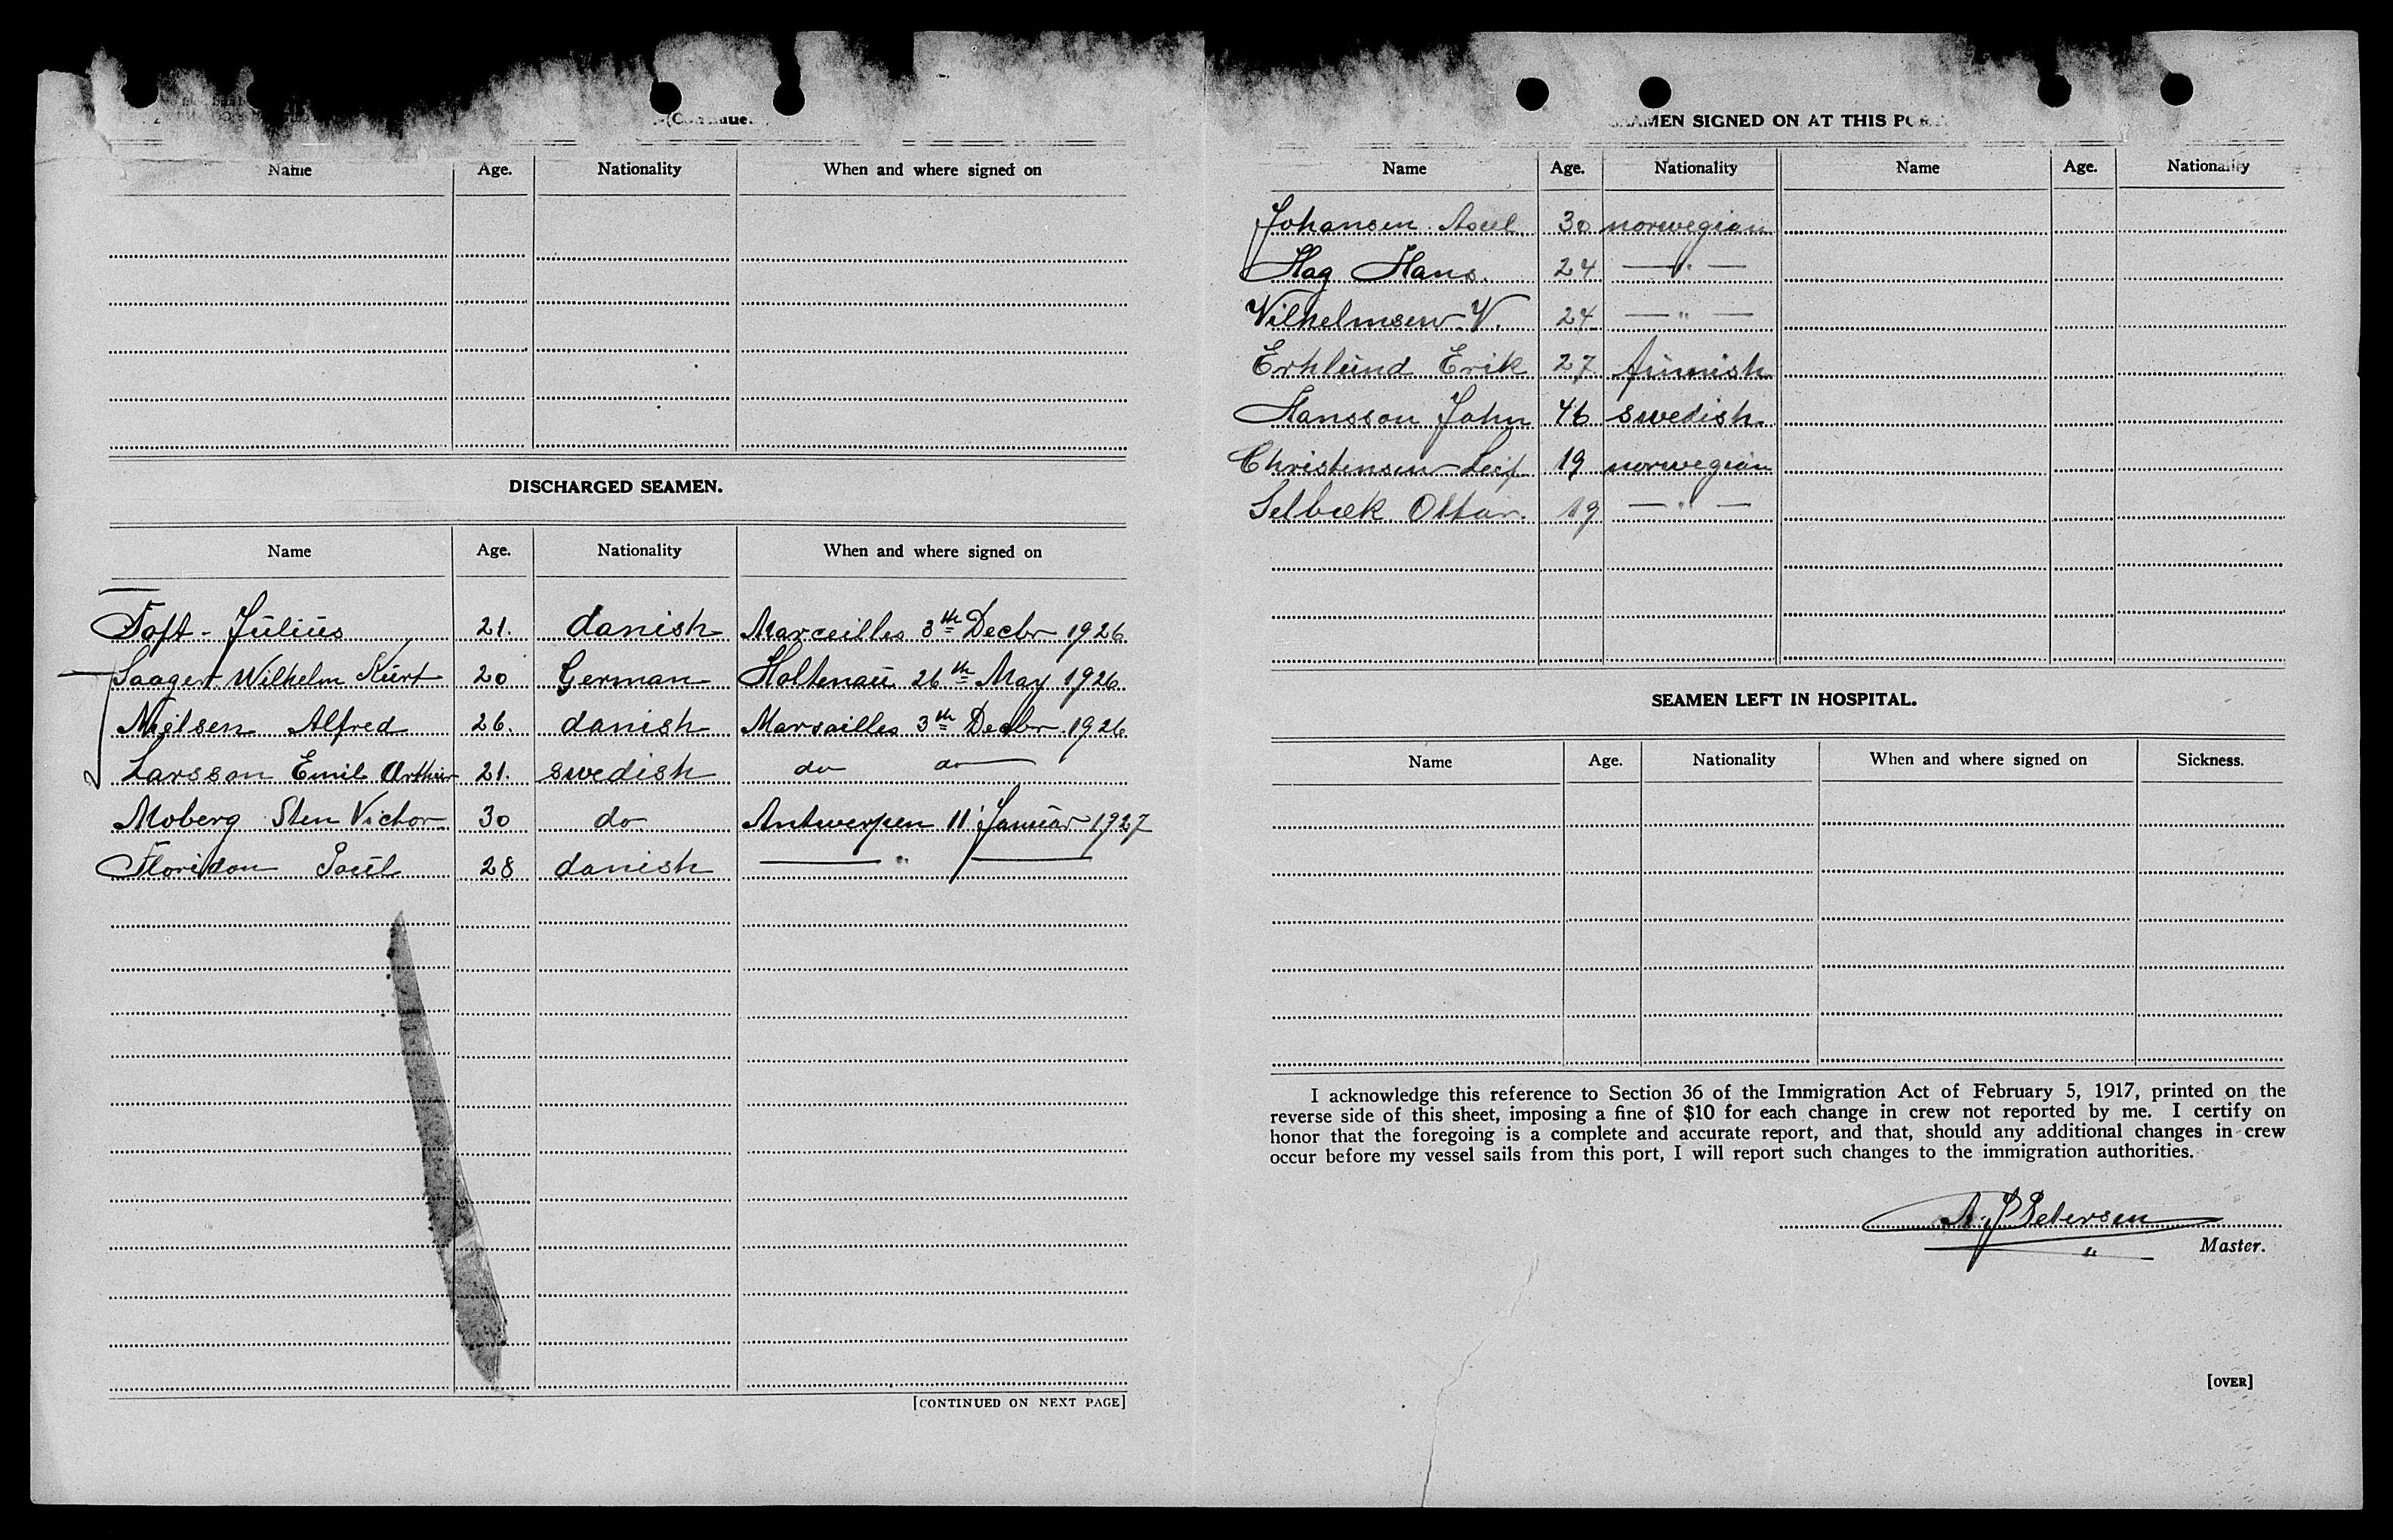 Name Age. Nationality When and where signed on
DISCHARGED SEAMEN.
Name Age. Nationality When and where signed on
Toft - Julius 21. danish Marceilles 3th Decbr 1926
Saagert Wilhelm Kurt 20 German Holtenau 26th May 1926
Nielsen Alfred 26. danish Marsailles 3th Decbr. 1926
Larsson Emil Arthur 21. swedish do do
Moberg Sten Victor 30 do Antwerpen 11' Januar 1927
Floridon Poul 28 danish — " —
[CONTINUED ON NEXT PAGE]
SEAMEN SIGNED ON AT THIS PORT
Name Age. Nationality Name Age. Nationality
Johansen Axel. 30 norwegian
Hag Hans. 24 — " —
Wilhelmsen V. 24 — " —
Erik 27 finnish
Hansson John 46 swedish
Christensen Leif 19 norwegian
Selbæk Ottar. 19 — " —
SEAMEN LEFT IN HOSPITAL.
Name Age. Nationality When and where signed on Sickness.
I acknowledge this reference to Section 36 of the Immigration Act of February 5, 1917, printed on the
reverse side of this sheet, imposing a fine of $10 for each change in crew not reported by me. I certify on
honor that the foregoing is a complete and accurate report, and that, should any additional changes in crew
occur before my vessel sails from this port, I will report such changes to the immigration authorities.
A. P Petersen
Master.
[OVER]